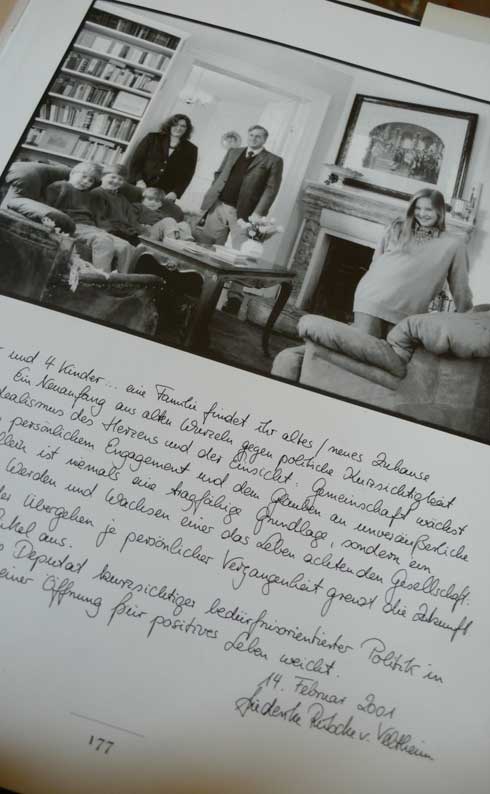 und 4 Kinder... eine Familie findet ihr altes / neues Zuhause
Ein Neuanfang aus alten Wurzeln gegen politische Kurzsichtigkeit
dealismus des Herzens und der Einsicht. Gemeinschaft wächst
persönlichem Engagement und dem Glauben an unveräußerliche
llein ist niemals eine tragfähige Grundlage, sondern ein
Werden und Wachsen einer das Leben achtenden Gesellschaft.
Übergehen je persönlicher Vergangenheit grenzt die Zukunft
aus.
Deputat kurzsichtiger bedürfnisorientierter Politik in
einer Öffnung für positives Leben weicht.
14. Februar 2001
v. Veltheim
177